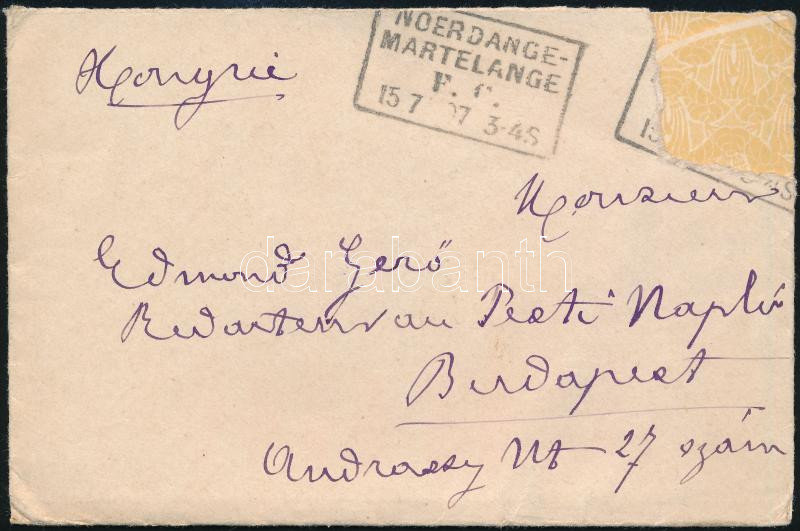 NOERDANGE-
MARTELANGE
F. C.
15 7 07 3-4S
Hongrie
Monsieur
Edmond Gerő
Redacteur au Pesti Napló
Budapest
Andrassy Ut 27 szám
darabanth